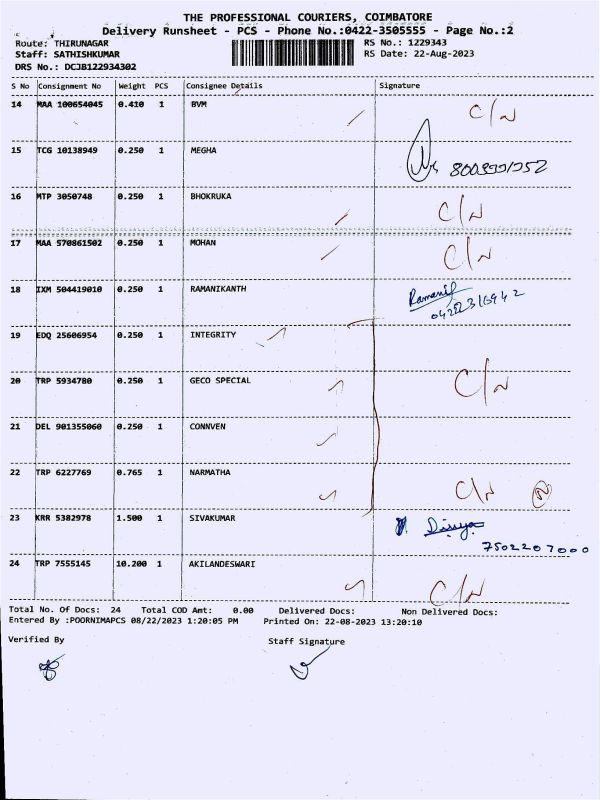 THE PROFESSIONAL COURIERS, COIMBATORE
Delivery Runsheet - PCS - Phone No.:0422-3505555 - Page No.:2
Route: THIRUNAGAR RS No.: 1229343
Staff: SATHISHKUMAR RS Date: 22-Aug-2023
DRS No.: DCJB122934302
S No Consignment No Weight PCS Consignee Details Signature
14 MAA 100654045 0.410 1 BVM C/N
15 TCG 10138949 0.250 1 MEGHA
16 MTP 3050748 0.250 1 BHOKRUKA C/N
17 MAA 570861502 0.250 1 MOHAN C/N
18 IXM 504419010 0.250 1 RAMANIKANTH
19 EDQ 25606954 0.250 1 INTEGRITY
20 TRP 5934780 0.250 1 GECO SPECIAL C/N
21 DEL 901355060 0.250 1 CONNVEN
22 TRP 6227769 0.765 1 NARMATHA C/N
23 KRR 5382978 1.500 1 SIVAKUMAR Divya
7502207000
24 TRP 7555145 10.200 1 AKILANDESWARI C/N
Total No. Of Docs: 24 Total COD Amt: 0.00 Delivered Docs: Non Delivered Docs:
Entered By :POORNIMAPCS 08/22/2023 1:20:05 PM Printed On: 22-08-2023 13:20:10
Verified By Staff Signature